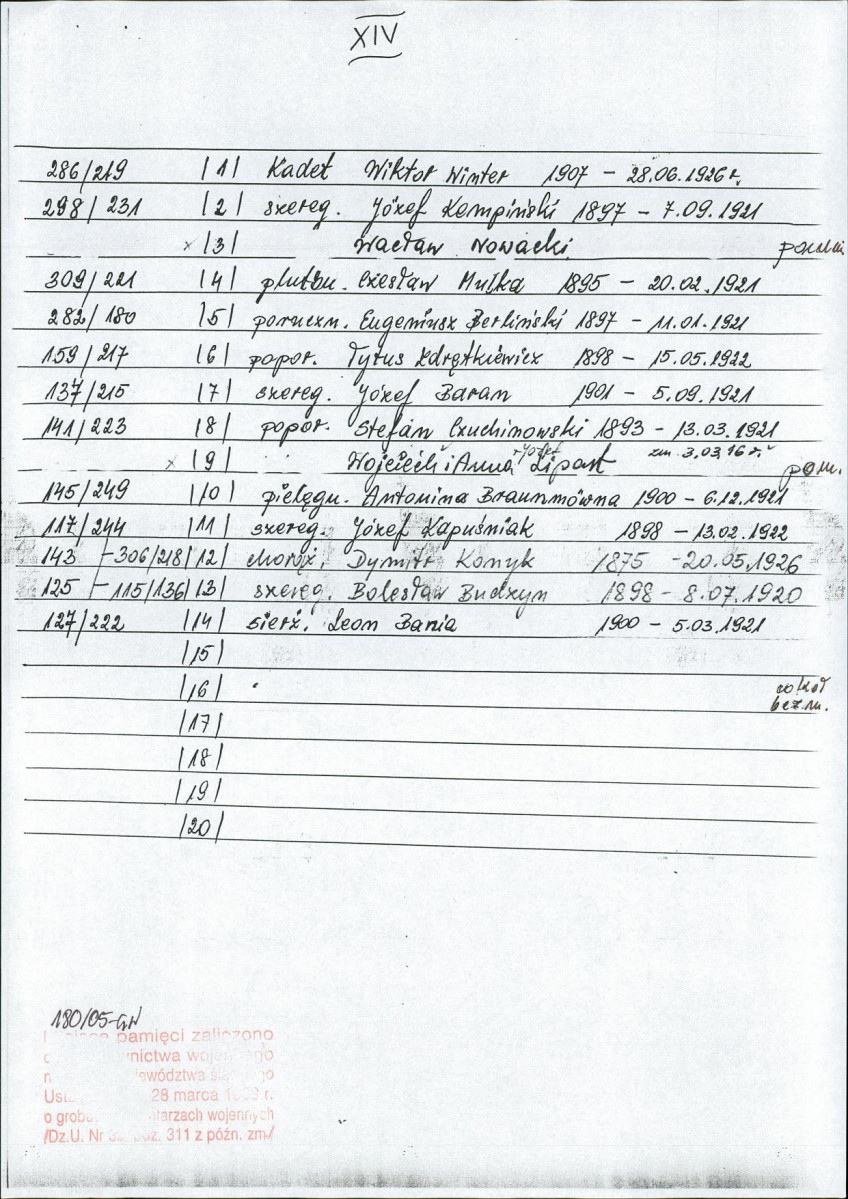 XIV
286/219 |1| Kadet Wiktor Winter 1907 – 28.06.1926 r.
298/231 |2| szereg. Józef Kempiński 1897 – 7.09.1921
x |3| Wacław Nowacki
309/221 |4| pluton. Czesław Mułka 1895 – 20.02.1921
282/180 |5| poruczn. Eugeniusz Berliński 1897 – 11.01.1921
159/217 |6| ppor. Tytus Zdrętkiewicz 1898 – 15.05.1922
137/215 |7| szereg. Józef Baran 1901 – 5.09.1921
141/223 |8| popor. Stefan Czuchinowski 1893 – 13.03.1921
x |9| Wojciech i Anna Józef Lipast zm. 3.03.16 r. pom.
145/249 |10| pielęgn. Antonina Braunmówna 1900 – 6.12.1921
117/244 |11| szereg. Józef Kapuśniak 1898 – 13.02.1922
143 – 306/218 |12| choroż. Dymitr Konyk 1875 – 20.05.1926
125 – 115/136 |13| szereg. Bolesław Budzyn 1898 – 8.07.1920
127/222 |14| sierż. Leon Bania 1900 – 5.03.1921
|15|
|16| cokoł
bez n.
|17|
|18|
|19|
|20|
180/05-GW
pamięci zaliczono
Dz.U. Nr poz. 311 z późn. zm/
28 marca r.
o grob wojennych